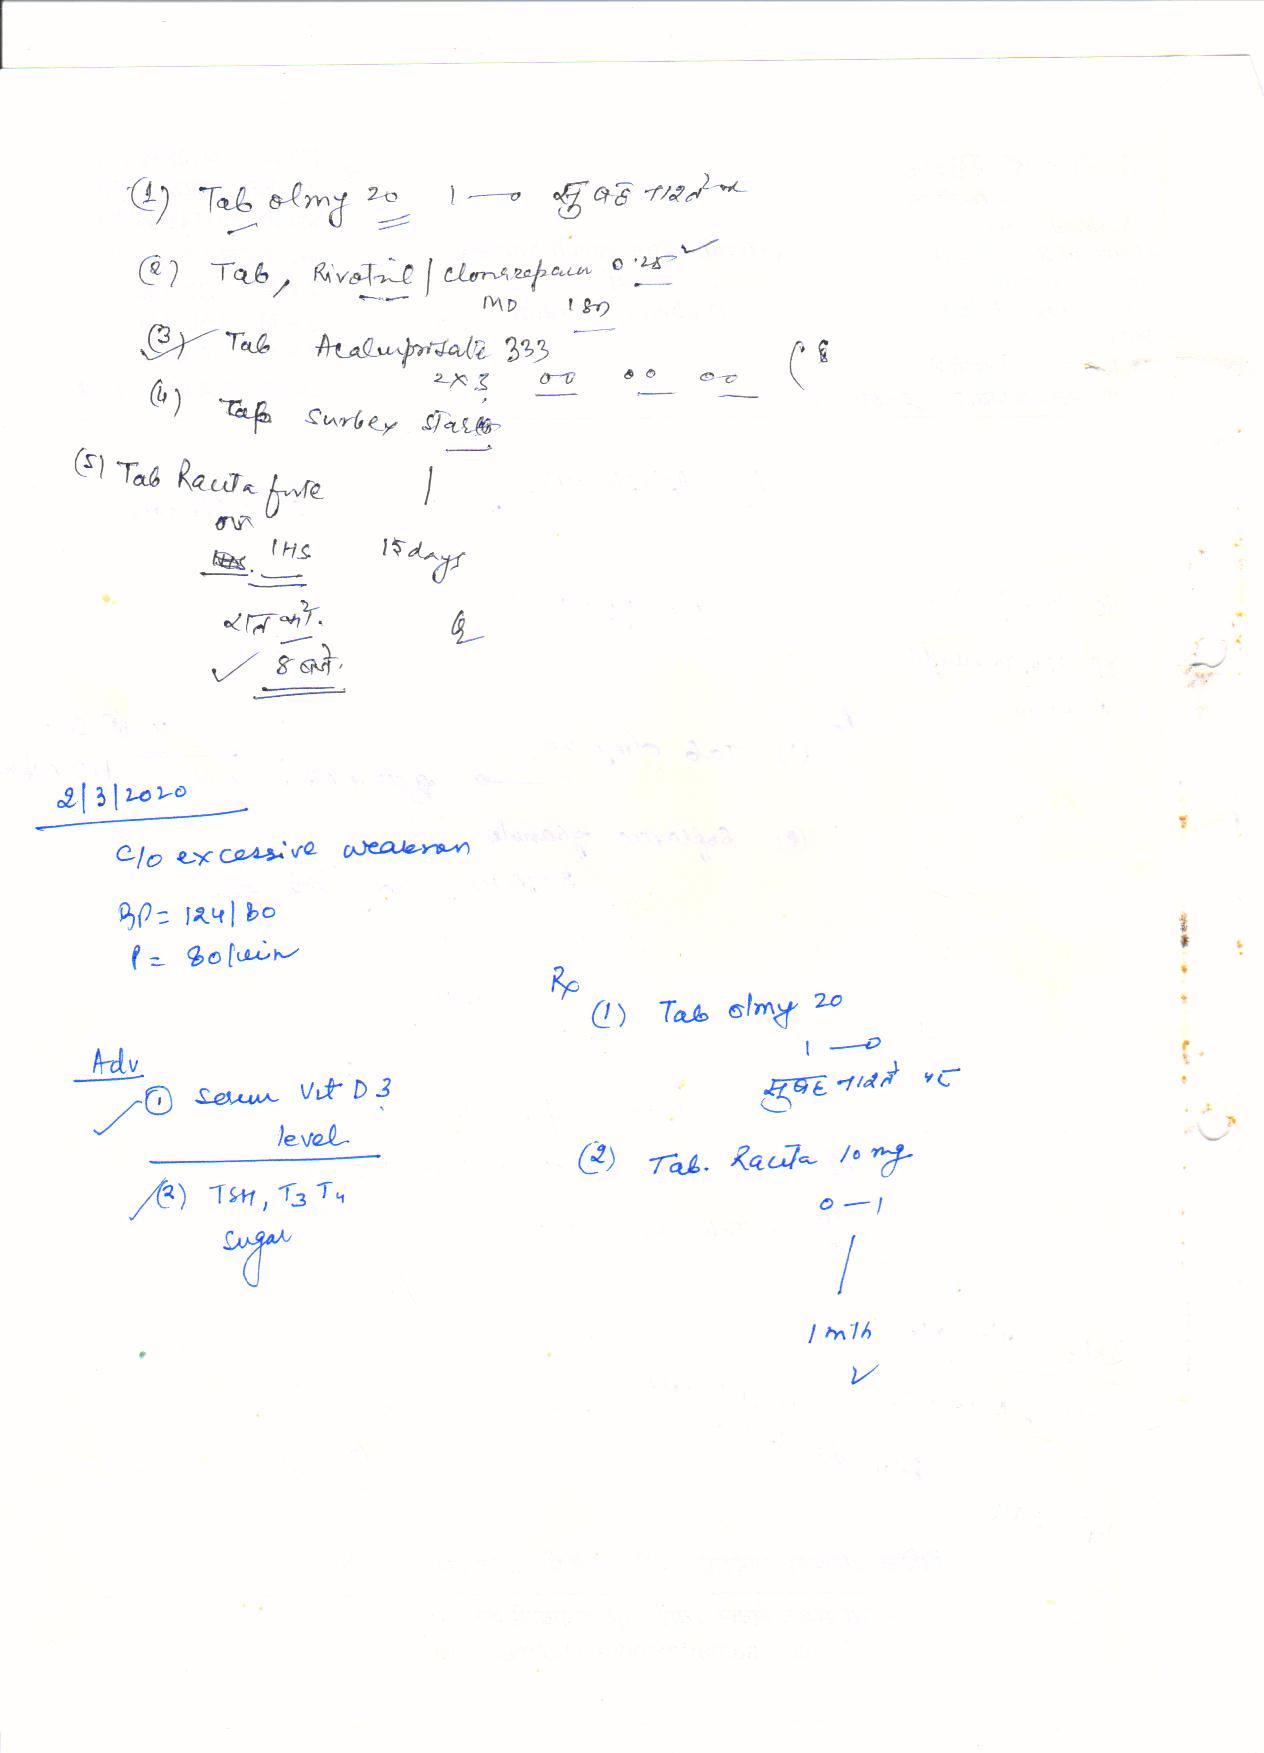 (1) Tab olmy 20 1 — 0 सुबह नाश्ते
(2) Tab, Rivotril / clonazepam 0.25
MD 1 SD
(3) Tab Acamprisate 333
2 x 3 00 00 00
(4) Tab surbex star
(5) Tab Racita forte
1 HS 15 days
रात को.
8 बजे.
2/3/2020
C/o excessive weakness
BP = 124/80
P = 80/min
Rx
(1) Tab olmy 20
1 — 0
Adv
सुबह नाश्ते पर
① serum Vit D3
level
(2) Tab. Racita 10 mg
(2) TSH, T3 T4
0 — 1
sugar
1 mth